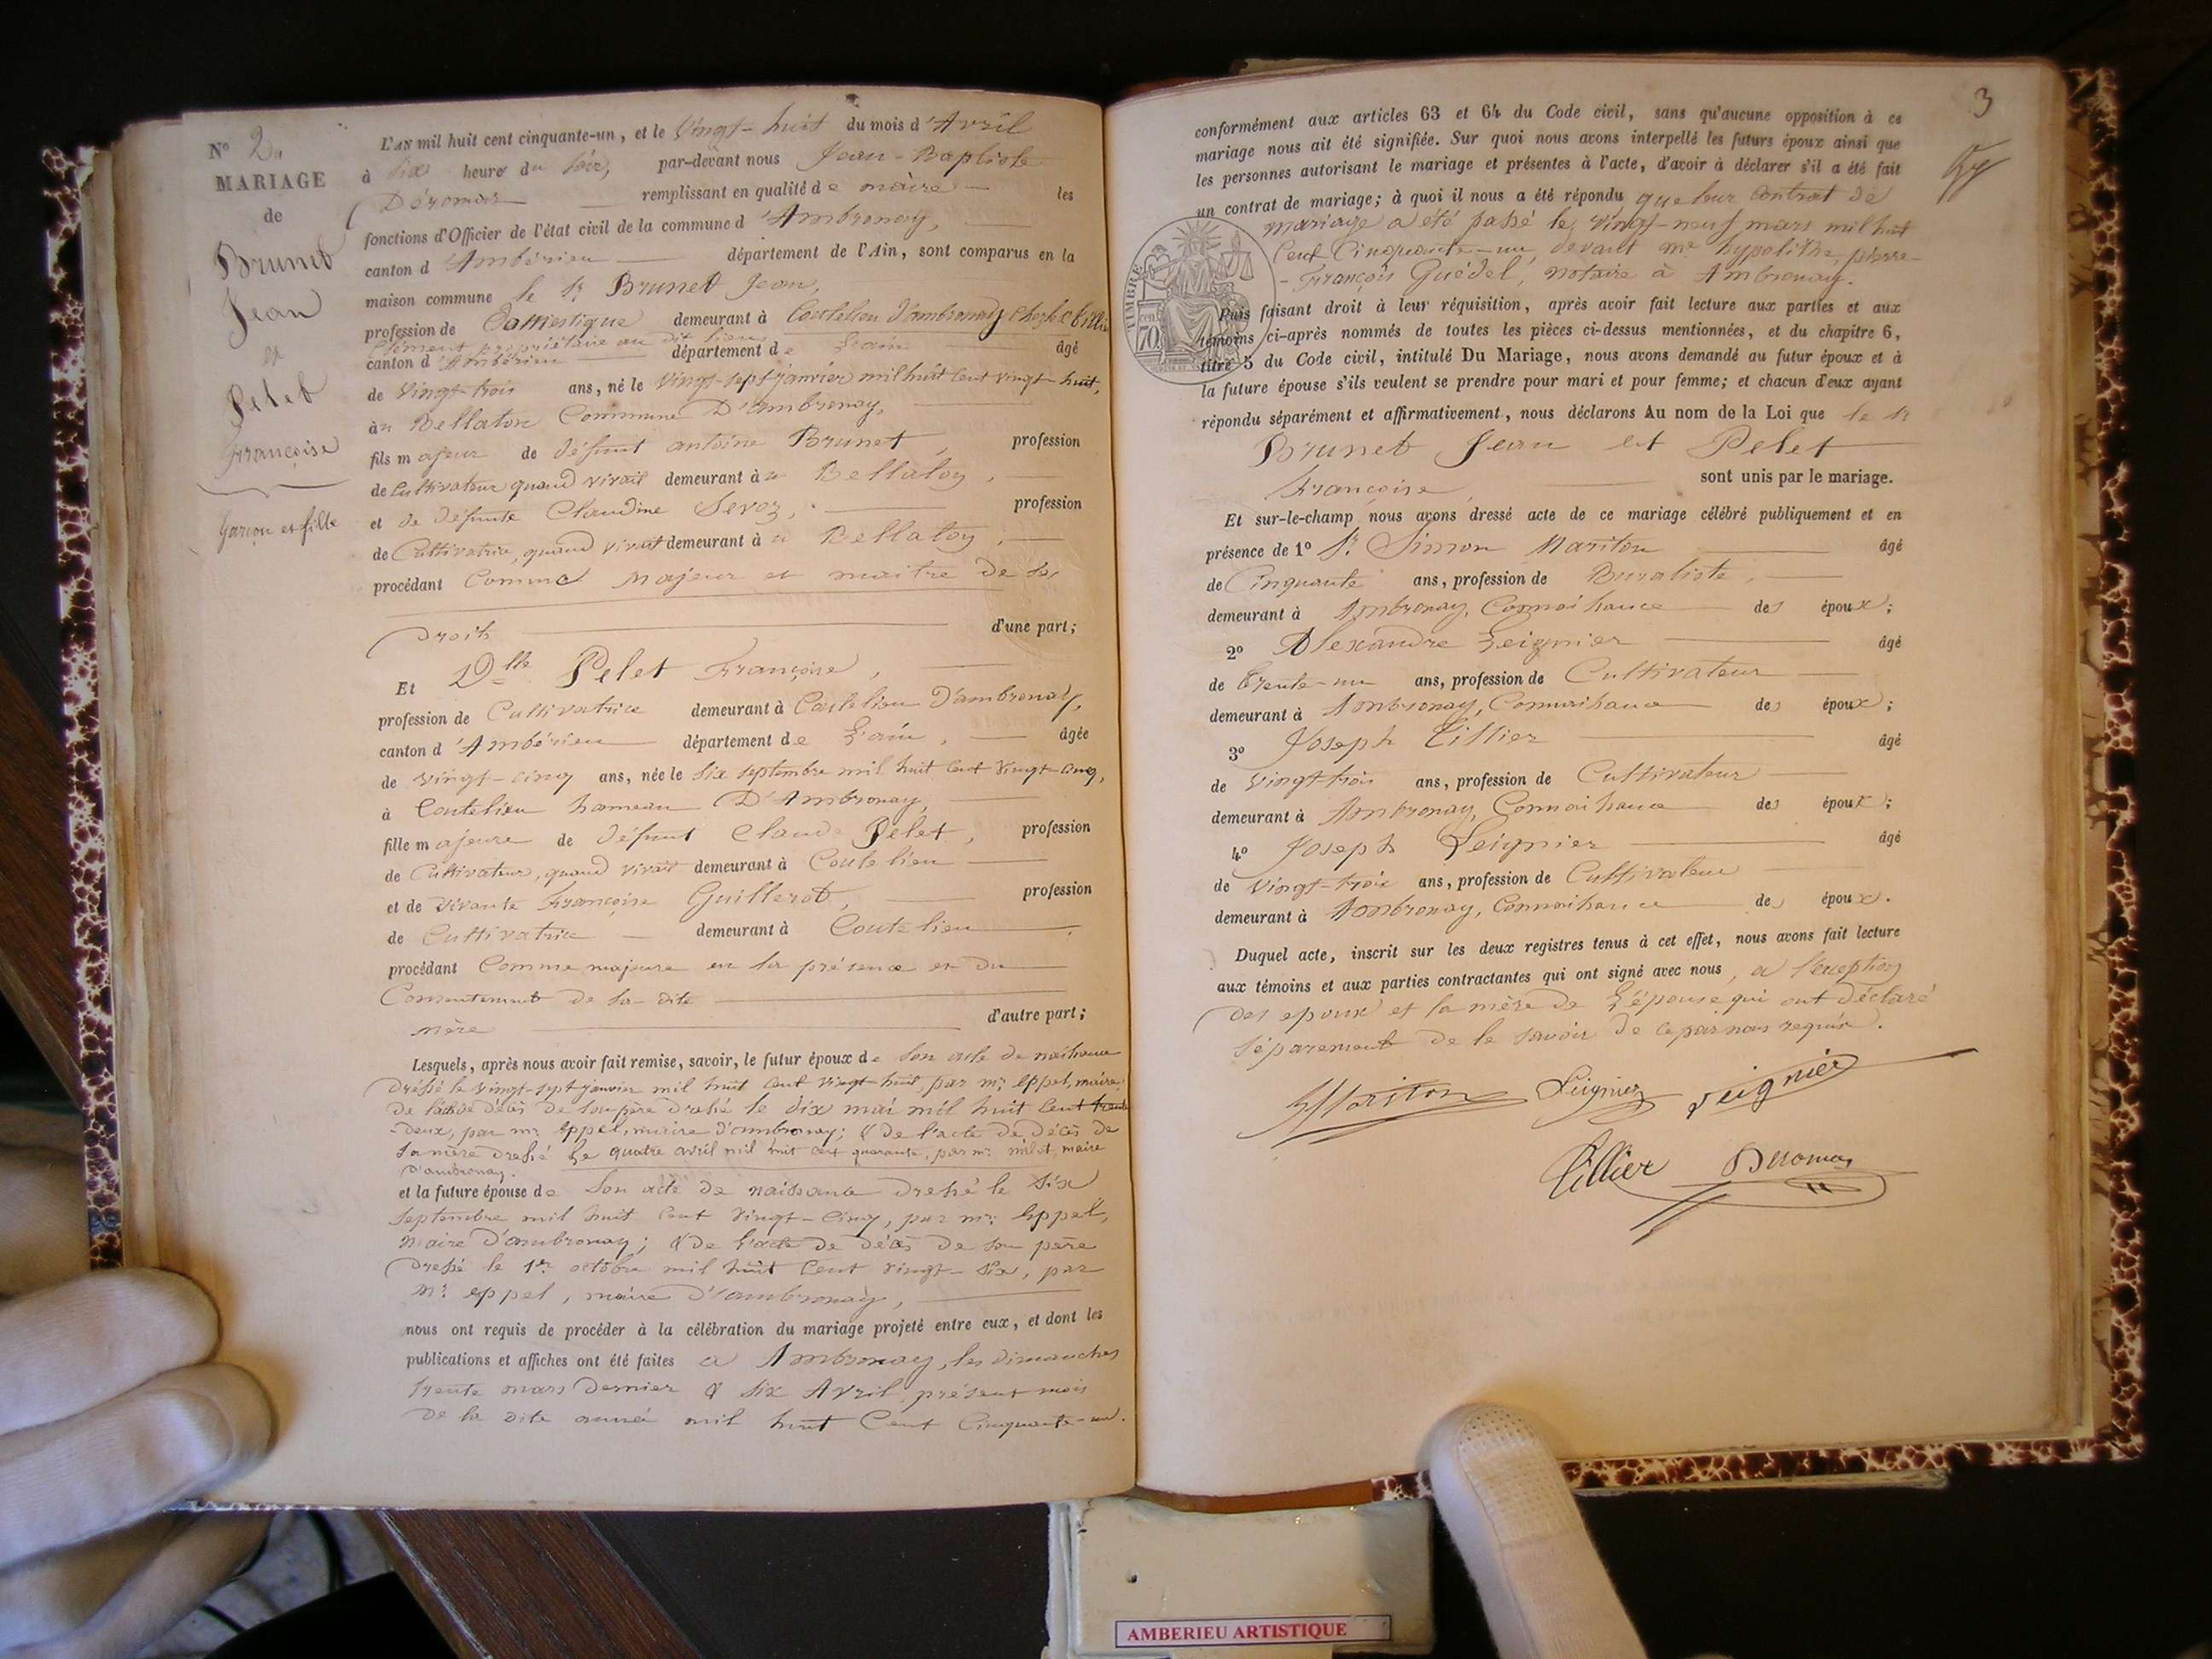 N° 2.
MARIAGE
de
Brunet
Jean
et
Pelet
Françoise
garçon et fille
L'AN mil huit cent cinquante-un, et le vingt-huit du mois d'Avril
à six heure du soir, par-devant nous Jean-Baptiste
Déromas remplissant en qualité de maire les
fonctions d'Officier de l'état civil de la commune d'Ambronay,
canton d'Ambérieu département de l'Ain, sont comparus en la
maison commune le sr Brunet Jean,
profession de Domestique demeurant à Coutelieu d'ambronay chez
Clément propriétaire au dit lieu
canton d'Ambérieu département de L'ain âgé
de vingt-trois ans, né le vingt-sept janvier mil huit cent vingt-huit,
àu Bellaton Commune D'ambronay,
fils majeur de défunt antoine Brunet, profession
de Cultivateur quand vivait demeurant àu Bellaton,
et de défunte Claudine Sevoz, profession
de Cultivatrice, quand vivait demeurant à u Bellaton,
procédant Comme Majeur et maitre de ses
Droits d'une part;
Et Dlle Pelet Françoise,
profession de Cultivatrice demeurant à Coutelieu D'ambronay,
canton d'Ambérieu département de L'ain, âgée
de vingt-cinq ans, née le six septembre mil huit cent vingt-cinq,
à Coutelieu hameau D'Ambronay,
fille majeure de défunt Claude Pelet, profession
de Cultivateur, quand vivait demeurant à Coutelieu
et de vivante Françoise Guillerot, profession
de Cultivatrice demeurant à Coutelieu
procédant Comme majeure en la présence et du
Consentement de sa dite
mère d'autre part;
Lesquels, après nous avoir fait remise, savoir, le futur époux de son acte de naissance
dressé le vingt-sept janvier mil huit cent vingt-huit, par mr Eppel, maire
de l'acte de décès de son père dressé le dix mai mil huit cent trente
deux, par mr Eppel, maire d'ambronay; & de l'acte de décès de
sa mère dressé le quatre avril mil huit cent quarante, par mr maire
D'ambronay.
et la future épouse de son acte de naissance dressé le six
septembre mil huit cent vingt-cinq, par mr Eppel,
maire d'ambronay; & de l'acte de décès de son père
dressé le 1er octobre mil huit cent vingt-six, par
mr eppel, maire d'ambronay,
nous ont requis de procéder à la célébration du mariage projeté entre eux, et dont les
publications et affiches ont été faites a Ambronay, les dimanches
trente mars dernier & six Avril, présent mois
de la dite année mil huit Cent Cinquante-un.
3
conformément aux articles 63 et 64 du Code civil, sans qu'aucune opposition à ce
mariage nous ait été signifiée. Sur quoi nous avons interpellé les futurs époux ainsi que
les personnes autorisant le mariage et présentes à l'acte, d'avoir à déclarer s'il a été fait
un contrat de mariage; à quoi il nous a été répondu que leur contrat de
mariage a été passé le vingt-neuf mars mil huit
Cent Cinquante-un, devant me hypolithe, pierre-
-François Guédel, notaire à Ambronay.
TIMBRE
70
Puis faisant droit à leur réquisition, après avoir fait lecture aux parties et aux
témoins ci-après nommés de toutes les pièces ci-dessus mentionnées, et du chapitre 6,
titre 5 du Code civil, intitulé Du Mariage, nous avons demandé au futur époux et à
la future épouse s'ils veulent se prendre pour mari et pour femme; et chacun d'eux ayant
répondu séparément et affirmativement, nous déclarons Au nom de la Loi que le sr
Brunet Jean et Pelet
Françoise sont unis par le mariage.
Et sur-le-champ nous avons dressé acte de ce mariage célébré publiquement et en
présence de 1° Sr Simon Mariton âgé
de Cinquante ans, profession de Buraliste,
demeurant à Ambronay, Connaissance des époux;
2° Alexandre Leignier âgé
de trente-un ans, profession de Cultivateur
demeurant à Ambronay, Connaissance des époux;
3° Joseph Tillier âgé
de vingt-trois ans, profession de Cultivateur
demeurant à Ambronay, Connaissance des époux;
4° Joseph Leignier âgé
de vingt-trois ans, profession de Cultivateur
demeurant à Ambronay, Connaissance des époux.
Duquel acte, inscrit sur les deux registres tenus à cet effet, nous avons fait lecture
aux témoins et aux parties contractantes qui ont signé avec nous, a l'exception
des epoux et la mère de L'épouse qui ont déclaré
séparement de le savoir de ce par nous requis.
Mariton Leignier Leignier
Tillier Deromas
AMBERIEU ARTISTIQUE